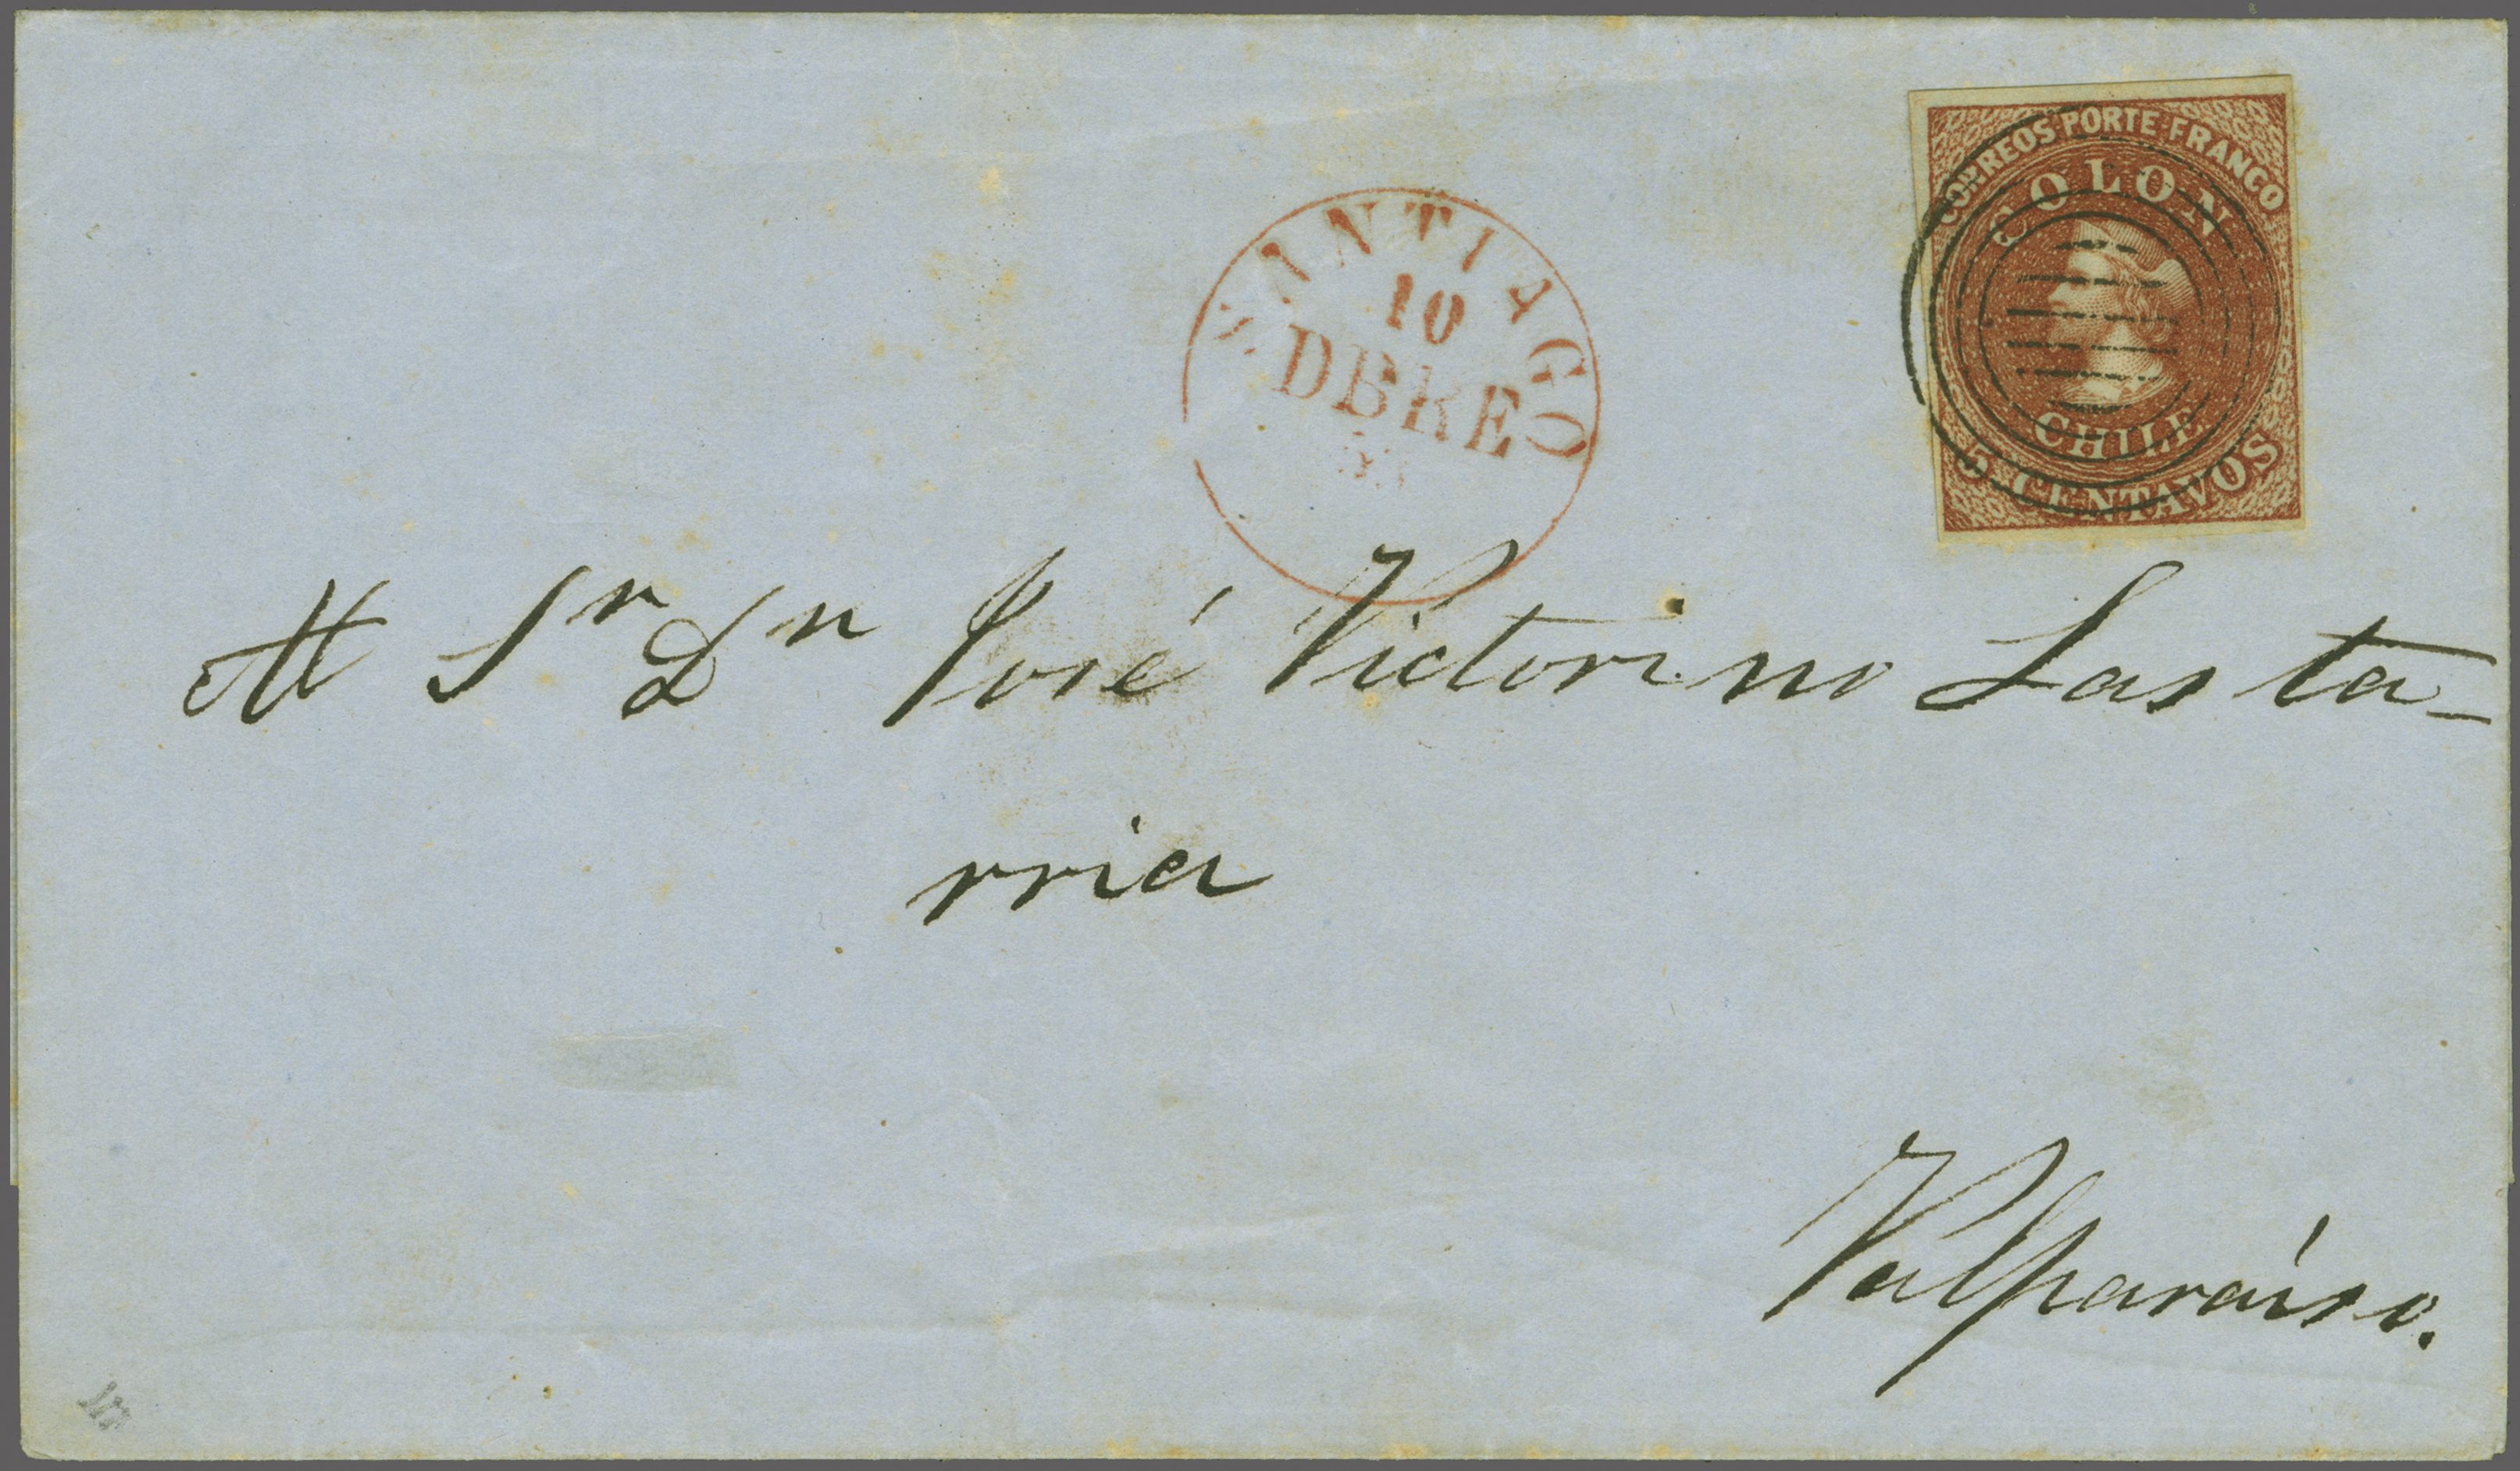 CORREOS PORTE FRANCO
COLON
CHILE
5 CENTAVOS
SANTIAGO
10
DBRE
Al Sr Dn José Victorino Lasta-
rria
Valparaíso.